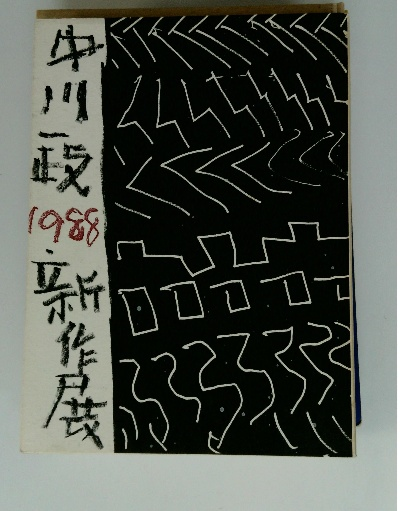 中川一政
1988
新作展